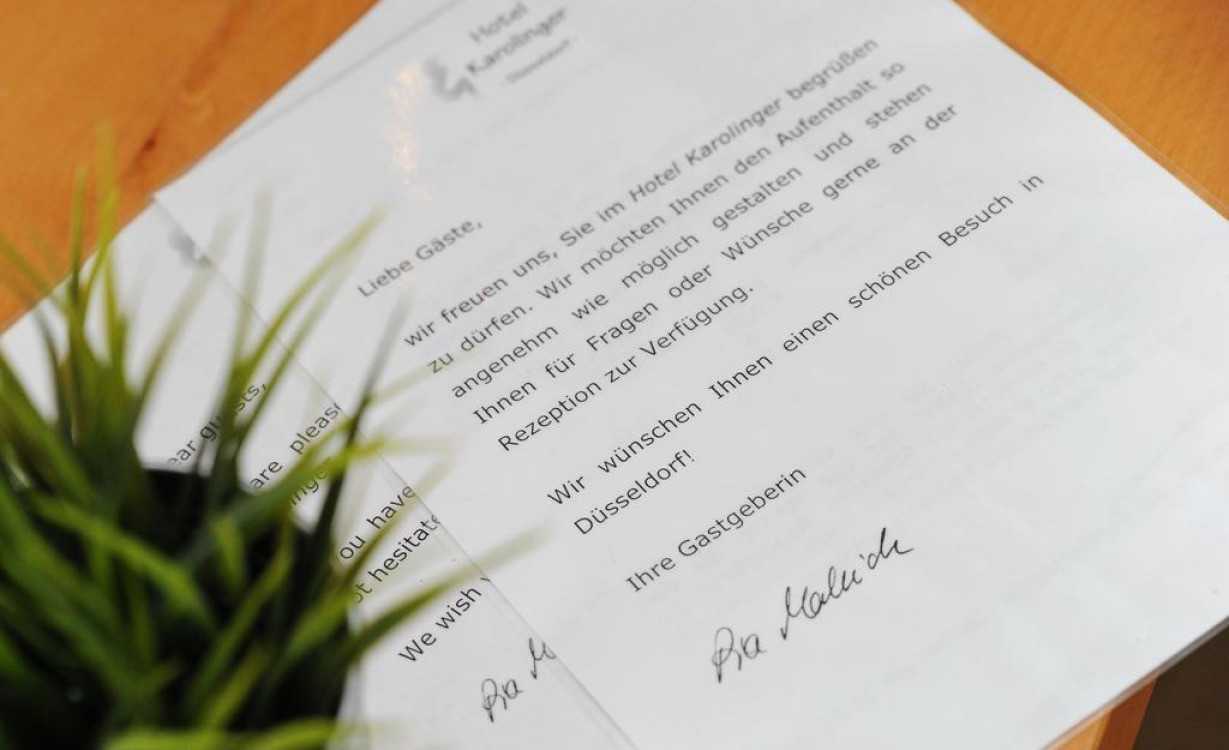 Hotel
Karolinger
Düsseldorf
Liebe Gäste,
wir freuen uns, Sie im Hotel Karolinger begrüßen
zu dürfen. Wir möchten Ihnen den Aufenthalt so
angenehm wie möglich gestalten und stehen
Ihnen für Fragen oder Wünsche gerne an der
Rezeption zur Verfügung.
Wir wünschen Ihnen einen schönen Besuch in
Düsseldorf!
Ihre Gastgeberin
Pia
ear guests,
are pleas
inger
ou have
ot hesitate
We wish
Pia M